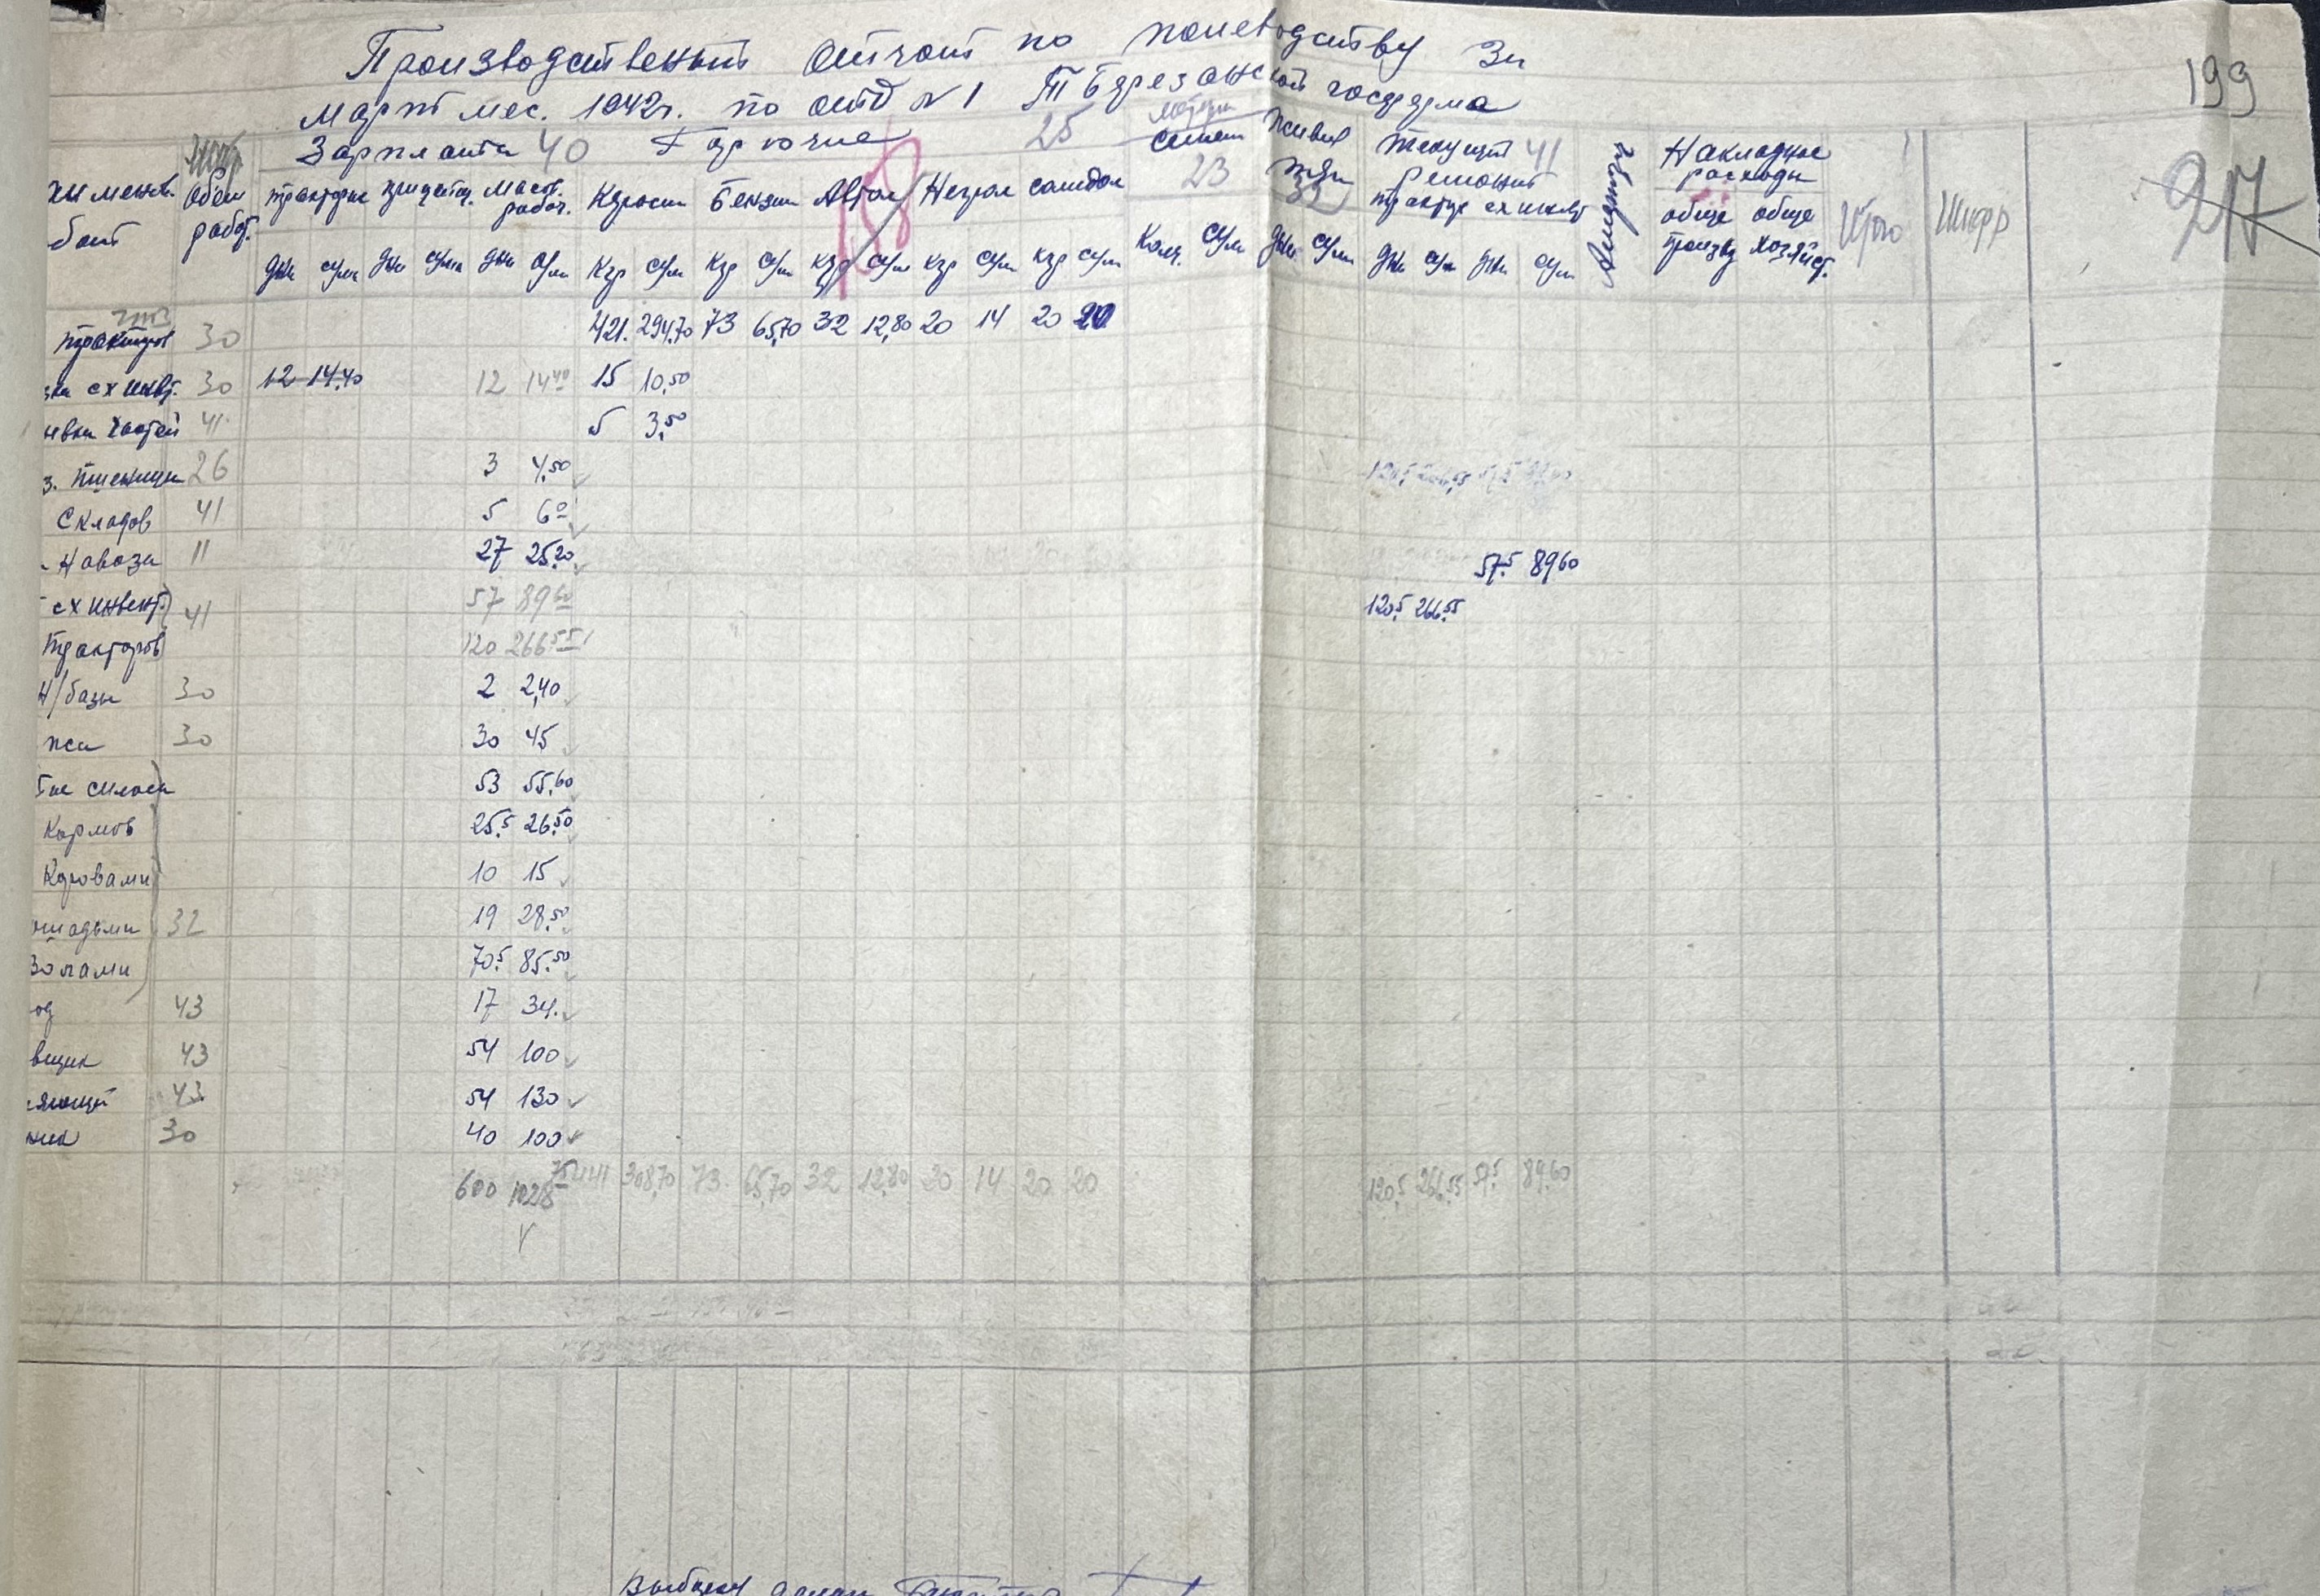 Производственный отчот по полеводству за
Март мес. 1942г. по отд № 1 Т Березанской госферма
199
217
Зарплата 40 Горючие 25 семен живая текущий 41 Накладные
расходы
наименов. Обем трактористы прицепщ. Массов. Керосин Бензин Автол Негрол солидол 23 тяга 33 Ремонт
работ работ. рабоч. трактор схинвент Амортиз обще обще Итого Шифр
произвд хозяйст.
дни сум дни сумм дни сум кгр сум кгр сум кгр сум кгр сум кгр сум Колич. сум дни сум дни сум дни сум
158
тракторов 30 421. 294.70 73 65,70 32 12,80 20 14 20 20
сх инвт. 30 12 14.40 12 14 40 15 10,50
частей 41 5 3,50
з. Пшеницы 26 3 4,50
Складов 41 5 6 0
Навоза 11 27 25,20 57.5 89 60
сх инвент. 41 57 89 60 120.5 266.55
Тракторов 120 266 55
Н/базы 30 2 2,40
30 30 45
силоса 53 55,60
Кормов 25.5 26.50
Коровами 10 15
ошадьми 32 19 28.50
Волами 70.5 85.50
од 43 17 34.
вщик 43 54 100
яющий 43 54 130
ник 30 40 100
600 1028 75 441 308,70 73 65,70 32 12,80 20 14 20 20 120.5 266.55 57.5 89.60